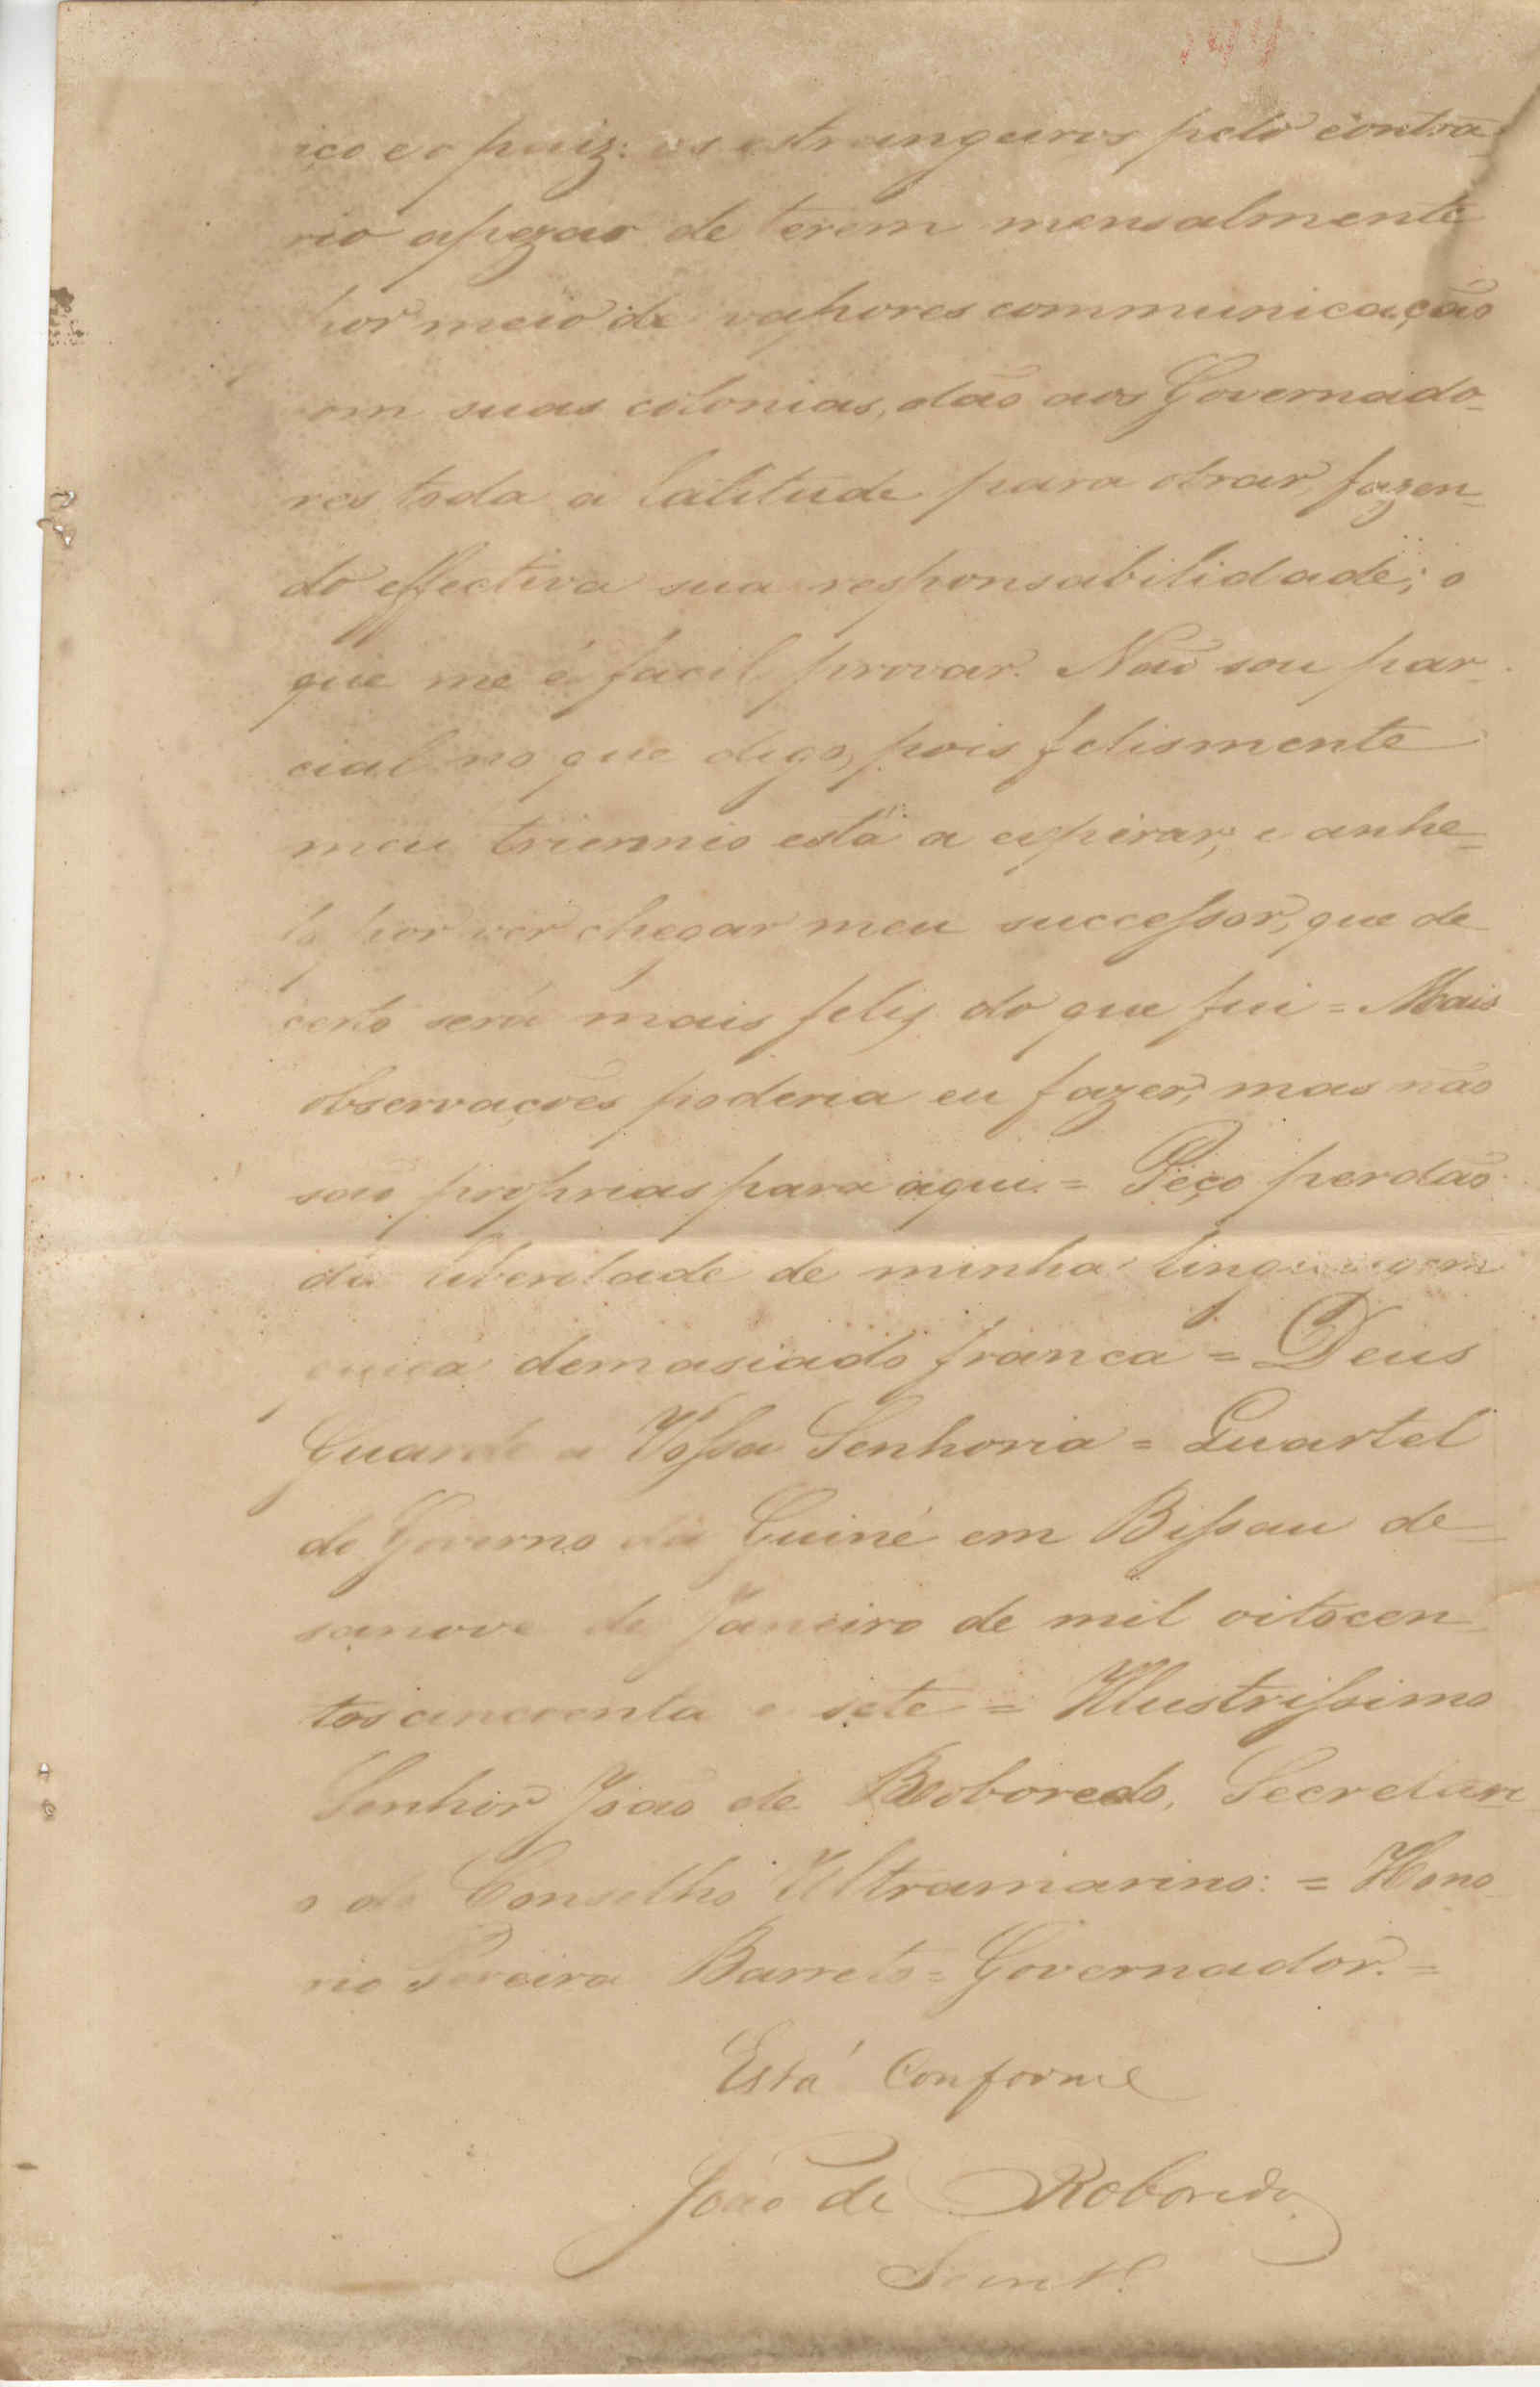 iço e o paiz: os estrangeiros pelo contra-
rio apezar de terem mensalmente
por meio de vapores communicação
com suas colonias, dão aos Governado-
res toda a latitude para obrar, fazen-
do effectiva sua responsabilidade; o
que me é facil provar. Não sou par-
cial no que digo, pois felismente
meu triennio está a expirar, e anhe-
lo por ver chegar meu successor, que de
certo será mais feliz do que fui = Mais
observações poderia eu fazer; mas não
são proprias para aqui. = Peço perdão
da liberdade de minha linguagem
demasiado franca = Deus
Guarde a Vossa Senhoria = Quartel
do Governo da Guiné em Bissau de-
sanove de Janeiro de mil oitocen-
tos cincoenta e sete = Illustrissimo
Senhor João de Roboredo, Secretari
o do Conselho Ultramarino: = Hono-
rio Pereira Barreto = Governador. =
Está Conforme
João de Roboredo